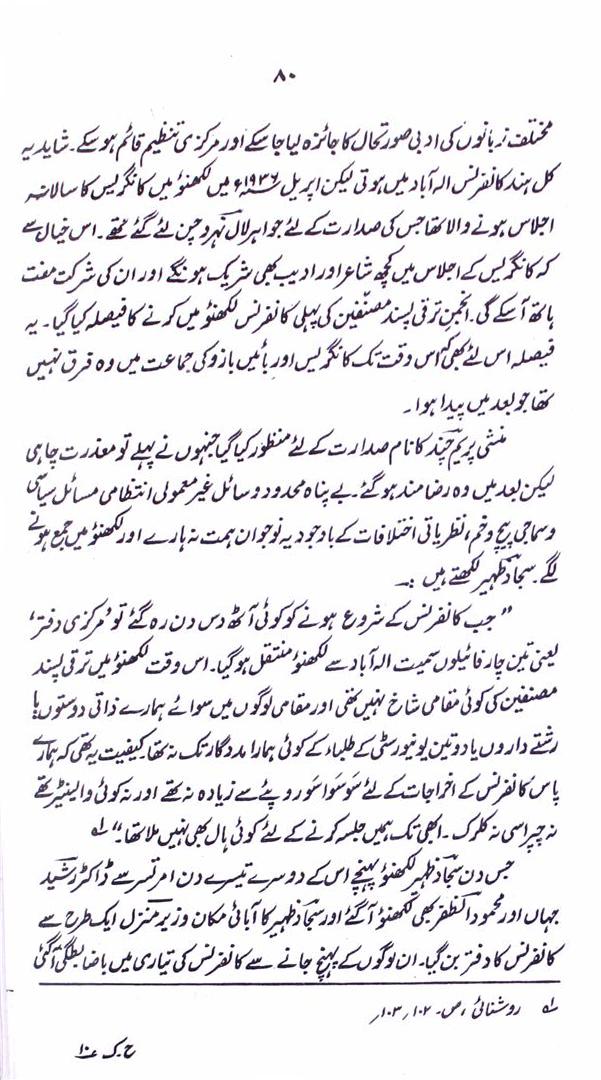 ۸۰
مختلف زبانوں کی ادبی صورتحال کا جائزہ لیا جا سکے اور مرکزی تنظیم قائم ہو سکے۔ شاید یہ
کل ہند کانفرنس الہ آباد میں ہوتی لیکن اپریل ۱۹۳۶ء میں لکھنؤ میں کانگریس کا سالانہ
اجلاس ہونے والا تھا جس کی صدارت کے لئے جواہر لال نہرو چن لئے گئے تھے۔ اس خیال سے
کہ کانگریس کے اجلاس میں کچھ شاعر اور ادیب بھی شریک ہونگے اور ان کی شرکت مفت
ہاتھ آ سکے گی۔ انجمن ترقی پسند مصنّفین کی پہلی کانفرنس لکھنؤ میں کرنے کا فیصلہ کیا گیا۔ یہ
فیصلہ اس لئے بھی کہ اس وقت تک کانگریس اور بائیں بازو کی جماعت میں وہ فرق نہیں
تھا جو بعد میں پیدا ہوا۔
منشی پریم چند کا نام صدارت کے لئے منظور کیا گیا جنہوں نے پہلے تو معذرت چاہی
لیکن بعد میں وہ رضامند ہو گئے۔ بے پناہ محدود وسائل غیر معمولی انتظامی مسائل سیاسی
و سماجی پیچ و خم، نظریاتی اختلافات کے باوجود یہ نوجوان ہمت نہ ہارے اور لکھنؤ میں جمع ہونے
لگے۔ سجاد ظہیر لکھتے ہیں :۔
” جب کانفرنس کے شروع ہونے کو کوئی آٹھ دس دن رہ گئے تو ’مرکزی دفتر‘
یعنی تین چار فائیلوں سمیت الہ آباد سے لکھنؤ منتقل ہو گیا۔ اس وقت لکھنؤ میں ترقی پسند
مصنفین کی کوئی مقامی شاخ نہیں تھی اور مقامی لوگوں میں سوائے ہمارے ذاتی دوستوں یا
رشتے داروں یا دو تین یونیورسٹی کے طلباء کے کوئی ہمارا مددگار تک نہ تھا کیفیت یہ تھی کہ ہمارے
پاس کانفرنس کے اخراجات کے لئے سَو سَوا سَو روپے سے زیادہ نہ تھے اور نہ کوئی والینٹیر تھے
نہ چپراسی نہ کلرک۔ ابھی تک ہمیں جلسہ کرنے کے لئے کوئی ہال بھی نہیں ملا تھا۔“ ۱ہ
جس دن سجاد ظہیر لکھنؤ پہنچے اس کے دوسرے تیسرے دن امرتسر سے ڈاکٹر رشید
جہاں اور محمود الظفر بھی لکھنؤ آ گئے اور سجاد ظہیر کا آبائی مکان وزیر منزل ایک طرح سے
کانفرنس کا دفتر بن گیا۔ ان لوگوں کے پہنچ جانے سے کانفرنس کی تیاری میں باضابطگی آ گئی
۱ہ روشنائی، ص۔ ۱۰۲، ۱۰۳،
ح۔ک ۱۰